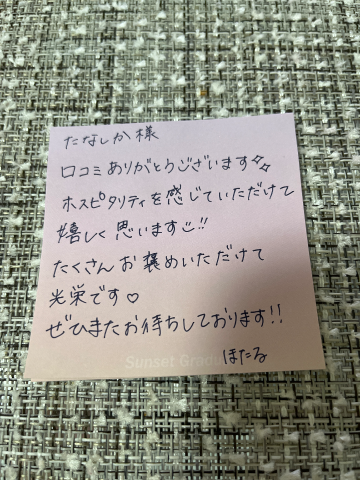 たなしか様
口コミありがとうございます✨
ホスピタリティを感じていただけて
嬉しく思います☺!!
たくさんお褒めいただけて
光栄です♡
ぜひまたお待ちしております!!
Sunset Gradu
ほたる